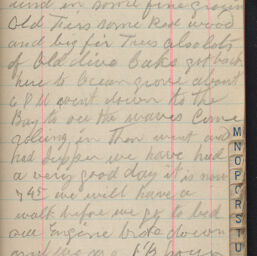 and in some fine grazin
Old Trees some Red wood
and big fir Trees also lots
of Old live Oaks got back
here to Ocean grove about
6 PM went down to the
Bay to see the waves Come
in Then went and
had supper we have had
a very good day it is now
7 45 we will have a
walk before we go to bed
our Engine broke down
and
M
N
O
P
Q
R
S
T
U